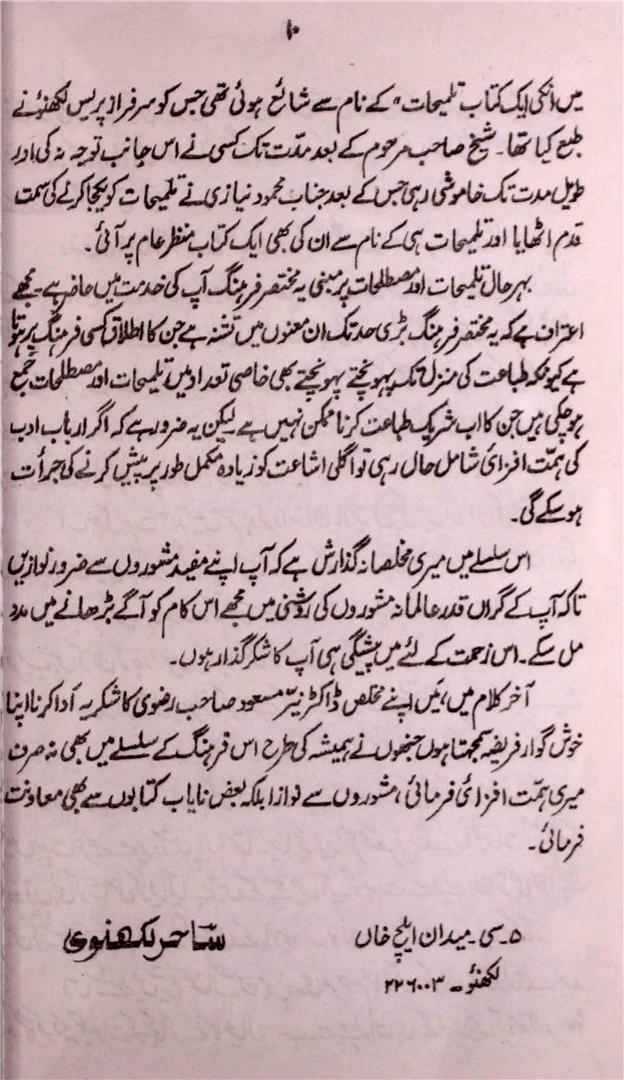 ۱۰
میں انکی ایک کتاب تلمیحات" کے نام سے شائع ہوئی تھی جس کو سرفراز پریس لکھنؤ نے
طبع کیا تھا۔ شیخ صاحب مرحوم کے بعد مدّت تک کسی نے اس جانب توجہ نہ کی اور
طویل مدت تک خاموشی رہی جس کے بعد جناب محمود نیازی نے تلمیحات کو یکجا کرنے کی سمت
قدم اٹھایا اور تلمیحات ہی کے نام سے ان کی بھی ایک کتاب منظر عام پر آئی۔
بہر حال تلمیحات اور مصطلحات پر مبنی یہ مختصر فرہنگ آپ کی خدمت میں حاضر ہے۔ مجھے
اعتراف ہے کہ یہ مختصر فرہنگ بڑی حد تک ان معنوں میں تشنہ ہے جن کا اطلاق کسی فرہنگ پر ہوتا
ہے کیونکہ طباعت کی منزل تک پہونچتے پہونچتے بھی خاصی تعداد میں تلمیحات اور مصطلحات جمع
ہو چکی ہیں جن کا اب شریک طباعت کرنا ممکن نہیں ہے لیکن یہ ضرور ہے کہ اگر ارباب ادب
کی ہمّت افزائی شامل حال رہی تو اگلی اشاعت کو زیادہ مکمل طور پر پیش کرنے کی جرأت
ہو سکے گی۔
اس سلسلے میں میری مخلصانہ گذارش ہے کہ آپ اپنے مفید مشوروں سے ضرور نوازیں
تاکہ آپ کے گراں قدر عالمانہ مشوروں کی روشنی میں مجھے اس کام کو آگے بڑھانے میں مدد
مل سکے۔ اس زحمت کے لئے میں پیشگی ہی آپ کا شکر گذار ہوں۔
آخر کلام میں، میَں اپنے مخلص ڈاکٹر نیّر مسعود صاحب رضوی کا شکریہ ادا کرنا اپنا
خوش گوار فریضہ سمجھتا ہوں جنھوں نے ہمیشہ کی طرح اس فرہنگ کے سلسلے میں بھی نہ صرف
میری ہمّت افزائی فرمائی، مشوروں سے نوازا بلکہ بعض نایاب کتابوں سے بھی معاونت
فرمائی۔
۵۔ سی۔ میدان ایلچ خاں
ساحر لکھنوی
لکھنؤ۔ ۲۲۶۰۰۳